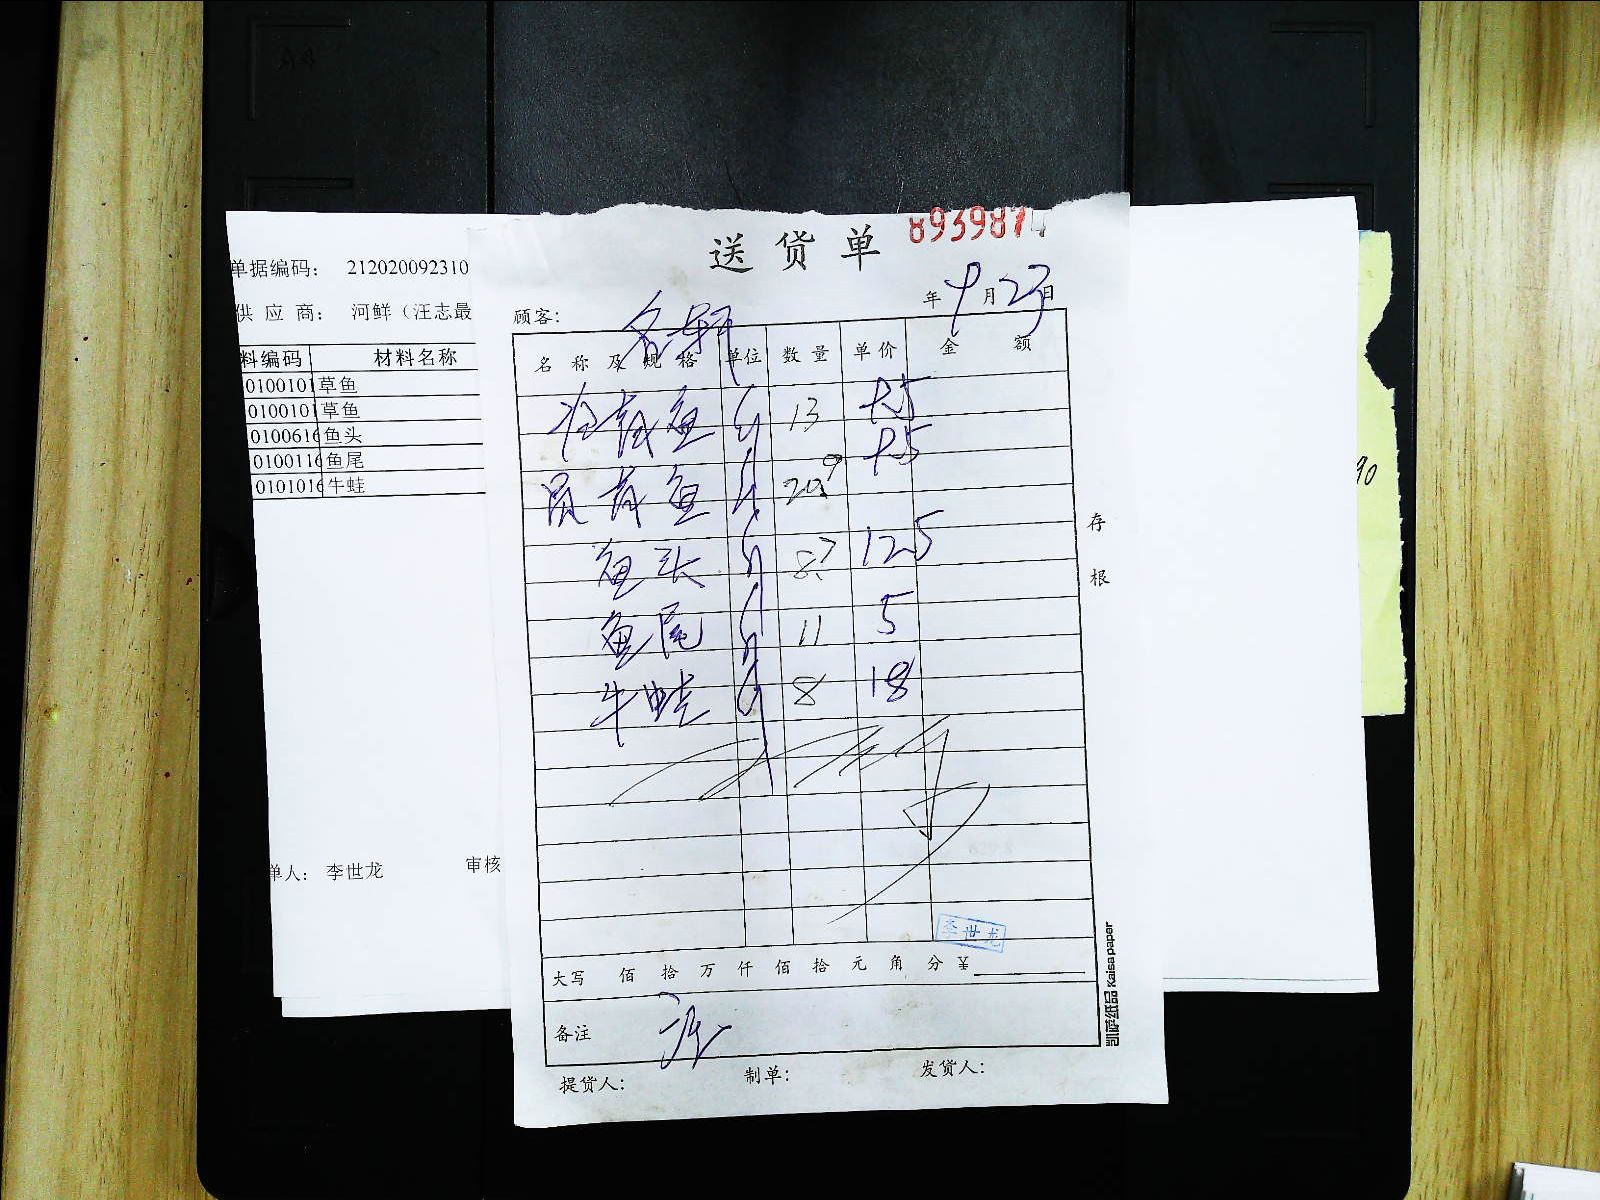 单据编码： 212020092310
供 应 商： 河鲜（汪志最
料编码 材料名称
0100101 草鱼
0100101 草鱼
0100616 鱼头
0100116 鱼尾
0101016 牛蛙
单人： 李世龙 审核
送货单 8939874
年 9 月 23 日
顾客：
名称及规格 单位 数量 单价 金额
鱼 13
鱼 20.9
鱼头 8.7 12.5
鱼尾 11 5
牛蛙 8 18
李世龙
大写 佰 拾 万 仟 佰 拾 元 角 分 ¥
备注
提货人： 制单： 发货人：
存根
凯萨纸品 Kaisa paper
90